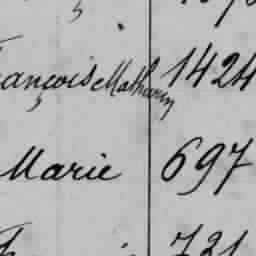 ançois Mathurin 1424
Marie 697
731